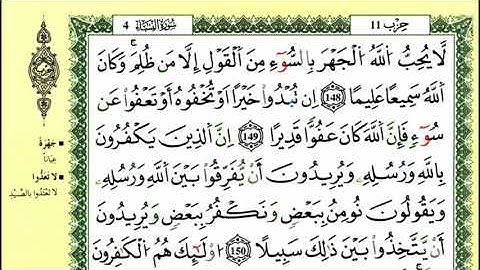 حِزْب 11
سُورَةُ النِّسَاءِ 4
لَّا يُحِبُّ اُللَّهُ اُلْجَهْرَ بِالسُّوٓءِ مِنَ اَلْقَوْلِ إِلَّا مَن ظُلِمَ وَكَانَ
اَللَّهُ سَمِيعًا عَلِيمًا 148 إِن تُبْدُواْ خَيْرًا اَوْ تُخْفُوهُ أَوْ تَعْفُواْ عَن
سُوٓءٍ فَإِنَّ اَللَّهَ كَانَ عَفُوًّا قَدِيرًا 149 إِنَّ اَلذِينَ يَكْفُرُونَ
بِاللَّهِ وَرُسُلِهِۦ وَيُرِيدُونَ أَنْ يُّفَرِّقُواْ بَيْنَ اَللَّهِ وَرُسُلِهِۦ
وَيَقُولُونَ نُومِنُ بِبَعْضٍ وَنَكْفُرُ بِبَعْضٍ وَيُرِيدُونَ
أَنْ يَّتَّخِذُواْ بَيْنَ ذَٰلِكَ سَبِيلًا 150 اُوْلَٰٓئِكَ هُمُ اُلْكَٰفِرُونَ
جَهْرَةً
عِيَانًا
لَا تَعَدُّواْ
لَا تَعْتَدُوا بِالصَّيْدِ